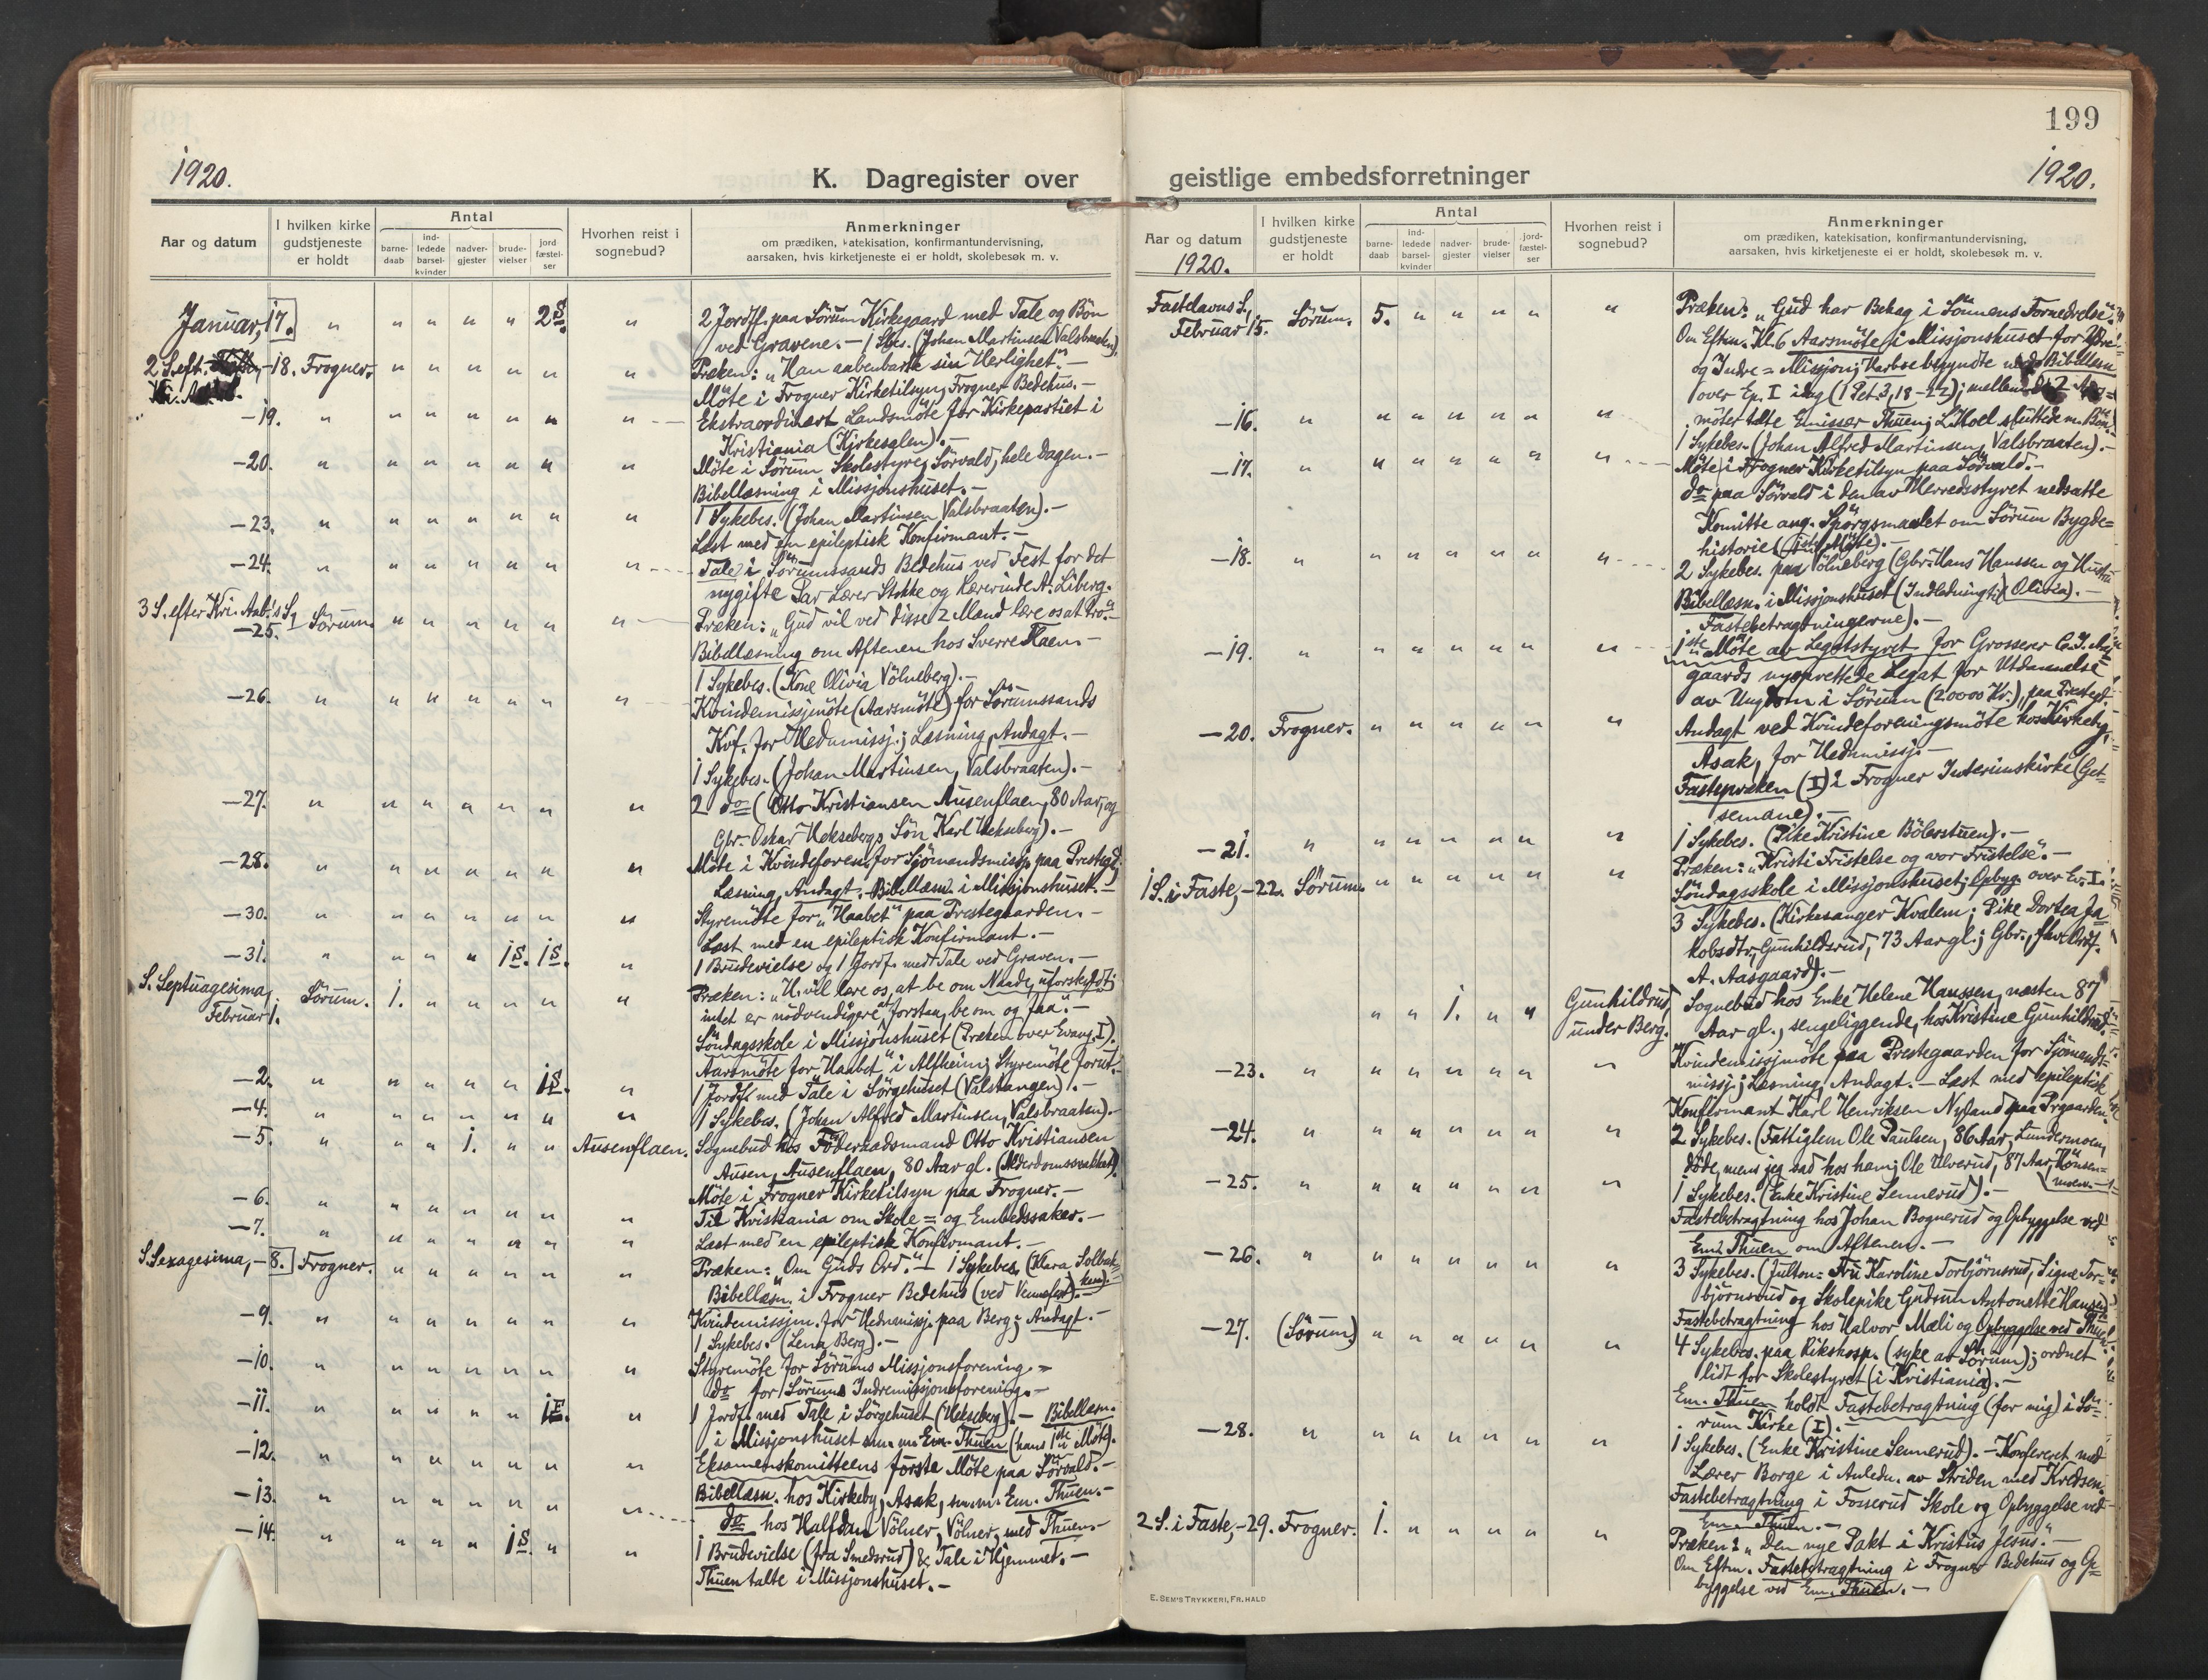 199
1920.
K. Dagregister over
geistlige embedsforretninger
1920.
Aar og datum
I hvilken kirke gudstjeneste er holdt
Antal
barne-daab
ind-ledede barsel-kvinder
nadver-gjester
brude-vielser
jord-fæstel-ser
Hvorhen reist i sognebud?
Anmerkninger
om prædiken, katekisation, konfirmantundervisning,
aarsaken, hvis kirketjeneste ei er holdt, skolebesøk m. v.
Januar, 17. " " " " " 2 S. " 2 Jordf. paa Sörum Kirkegaard med Tale og Bön
ved Gravene. – 1 Sbes. (Johan Martinsen Valsbraaten).
2 S. eft. – 18. Frogner. " " " " " " Præken: „Han aabenbarte sin Herlighet". –
Möte i Frogner Kirketilsyn, Frogner Bedehus. –
– 19. " " " " " " " Ekstraordinært Landsmöte for Kirkepartiet i
Kristiania (Kirkesalen). –
– 20. " " " " " " " Möte i Sörum Skolestyre, Sörvald, hele Dagen. –
Bibellæsning i Missjonshuset. –
– 23. " " " " " " " 1 Sykebes. (Johan Martinsen Valsbraaten). –
Læst med en epileptisk Konfirmant. –
– 24. " " " " " " " Tale i Sörumssands Bedehus ved Fest for det
nygifte Par Lærer Stokke og Lærerinde A. Liberg. –
3 S. efter Kri. Aab.s S.
– 25. Sörum. " " " " " " Præken: „Gud vil ved disse 2 Mænd lære os at tro". –
Bibellæsning om Aftenen hos Sverre Haen. –
1 Sykebes. (Kone Olivia Völneberg). –
– 26. " " " " " " " Kvindemissjmöte (Aarsmöte) for Sörumssands
Kvf. for Hedn.missj.; Læsning, Andagt. –
1 Sykebes. (Johan Martinsen, Valsbraaten). –
– 27. " " " " " " " 2 do (Otto Kristiansen Ausenflaen, 80 Aar, og
Gbr. Oskar Ueksebergs Sön Karl Uekseberg). –
– 28. " " " " " " " Möte i Kvindeforen. for Sjömandsmissj. paa Prestegd.;
Læsning, Andagt. Bibellæsn. i Missjonshuset. –
– 30. " " " " " " " Styremöte for „Haabet" paa Prestegaarden. –
Læst med en epileptisk Konfirmant. –
– 31. " " " " 1 S. 1 S. " 1 Brudevielse og 1 Jordf. med Tale ved Graven. –
S. Septuagesima,
Februar 1. Sörum. 1. " " " " " Præken: „H. vil lære os, at be om Naade, uforskyldt;
intet er nödvendigere at forstaa, be om og faa". –
Söndagsskole i Missjonshuset (Præken over Evang. I).
Aarsmöte for „Haabet" i Alfheim; Styremöte forut. –
– 2. " " " " " 1 S. " 1 Jordf. med Tale i Sörgehuset (Valstangen). –
– 4. " " " " " " " 1 Sykebes. (Johan Alfred Martinsen, Valsbraaten). –
– 5. " " " 1. " " Ausenflaen. Sognebud hos Föderaadsmand Otto Kristiansen
Ausen, Ausenflaen, 80 Aar gl. (Alderdomssvakhet).
– 6. " " " " " " " Möte i Frogner Kirketilsyn paa Frogner. –
– 7. " " " " " " " Til Kristiania om Skole= og Embedssaker. –
Læst med en epileptisk Konfirmant. –
S. Sexagesima, – 8. Frogner. " " " " " " Præken: Om Guds Ord". – 1 Sykebes. (Klara Solbak=
Bibellæsn. i Frogner Bedehus (ved Vennefest). – ken). –
– 9. " " " " " " " Kvindemissjm. for Hednmissj. paa Berg; Andagt. –
1 Sykebes. (Lena Berg). –
– 10. " " " " " " " Styremöte for Sörums Missjonsforening. =
do for Sörums Indremissjonsforening. –
– 11. " " " " " 1 F. " 1 Jordf. med Tale i Sörgehuset (Uekseberg). – Bibellæsn.
i Missjonshuset sm. m. Em. Thuen (hans 1ste Möte).
– 12. " " " " " " " Eksamenskomitteens förste Möte paa Sörvald. –
– 13. " " " " " " " Bibellæsn. hos Kirkeby, Asak, sm. m. Em. Thuen. –
do hos Halfdan Völner, Völner, med Thuen. –
– 14. " " " " 1 S. " " 1 Brudevielse (fra Smedsrud) & Tale i Hjemmet. –
Thuen talte i Missjonshuset. –
Aar og datum
1920.
I hvilken kirke gudstjeneste er holdt
Antal
barne-daab
ind-ledede barsel-kvinder
nadver-gjester
brude-vielser
jord-fæstel-ser
Hvorhen reist i sognebud?
Anmerkninger
om prædiken, katekisation, konfirmantundervisning,
aarsaken, hvis kirketjeneste ei er holdt, skolebesøk m. v.
Fastelavns S.,
Februar 15. Sörum. 5. " " " " " Præken: „Gud har Behag i Sönnens Fornedrelse".
Om Eftm. Kl. 6 Aarsmöte i Missjonshuset for Ydre=
og Indre= Missjon; begyndte Bibellæsn.
over Ep. I idag (1 Pet. 3, 18–22); mellem de 2 Aars=
möter talte Emissær Thuen; L. Moel sluttede m. Bön.
– 16. " " " " " " " 1 Sykebes. (Johan Alfred Martinsen, Valsbraaten). –
– 17. " " " " " " " Möte i Frogner Kirketilsyn paa Sörvald. –
do paa Sörvald i den av Herredsstyret nedsatte
Komitte ang. Spörgsmaalet om Sörum Bygde=
historie (1ste Möte). –
– 18. " " " " " " " 2 Sykebes. paa Völneberg (Gbr. Hans Hanssen og Hustru
Bibellæsn. i Missjonshuset (Indledning til Olivia). –
Fastebetragtningerne). –
– 19. " " " " " " " 1ste Möte av Legatstyret for Grosserer C. J.
gaards nyoprettede Legat for Utdannelse
av Ungdom i Sörum (20000 Kr.), paa Prestegd.
– 20. Frogner. " " " " " " Andagt ved Kvindeforeningsmöte hos Kirkeby,
Asak, for Hednmissj. –
Fastepræken (I) i Frogner Interimskirke (Get=
semane). –
– 21. " " " " " " " 1 Sykebes. (Pike Kristine Bölerstuen). –
1 S. i Faste, – 22. Sörum. " " " " " " Præken: „Kristi Fristelse og vor Fristelse". –
Söndagsskole i Missjonshuset; Opbyg. over Ev. I.
3 Sykebes. (Kirkesanger Kvalem; Pike Dortea Ja
kobsdtr. Gunhildsrud, 73 Aar gl.; Gbr., fhv. Ordf.
A. Aasgaard). –
" " 1. " " Gunhildrud, under Berg. Sognebud hos Enke Helene Hanssen, næsten 87
Aar gl., sengeliggende, hos Kristine Gunhildrud.
– 23. " " " " " " " Kvindemissjmöte paa Prestegaarden for Sjömands=
missj.; Læsning, Andagt. – Læst med epileptisk
Konfirmant Karl Henriksen Nyland paa Prgaarden.
– 24. " " " " " " " 2 Sykebes. (Fattiglem Ole Paulsen, 86 Aar, Lundermoen,
döde, mens jeg sad hos ham; Ole Ulverud, 87 Aar, Hönsen=
moen. –
– 25. " " " " " " " 1 Sykebes. (Enke Kristine Sennerud). –
Fastebetragtning hos Johan Bognerud og Opbyggelse ved
Em. Thuen om Aftenen. –
– 26. " " " " " " " 3 Sykebes. (Julton: Fru Karoline Torbjörnsrud, Signe Tor=
björnsrud og Skolepike Gudrun Antonette Hansen)
Fastebetragtning hos Halvor Mæli og Opbyggelse ved Thuen.
– 27. (Sörum) " " " " " " 4 Sykebes. paa Rikshosp. (syke av Sörum); ordnet
lidt for Skolestyret (i Kristiania). –
Em. Thuen holdt Fastebetragtning (for mig) i Sö=
rum Kirke (I). –
– 28. " " " " " " " 1 Sykebes. (Enke Kristine Sennerud). – Konfereret med
Lærer Borge i Anledn. av Striden med Kredsen.
Fastebetragtning i Fosserud Skole og Opbyggelse ved
Em. Thuen. –
2 S. i Faste, – 29. Frogner. 1. " " " " " Præken: „Den nye Pakt i Kristus Jesus". –
Om Eftm. Fastebetragtning i Frogner Bedehus og Op=
byggelse ved Em. Thuen. –
E. SEM'S TRYKKERI, FR. HALD